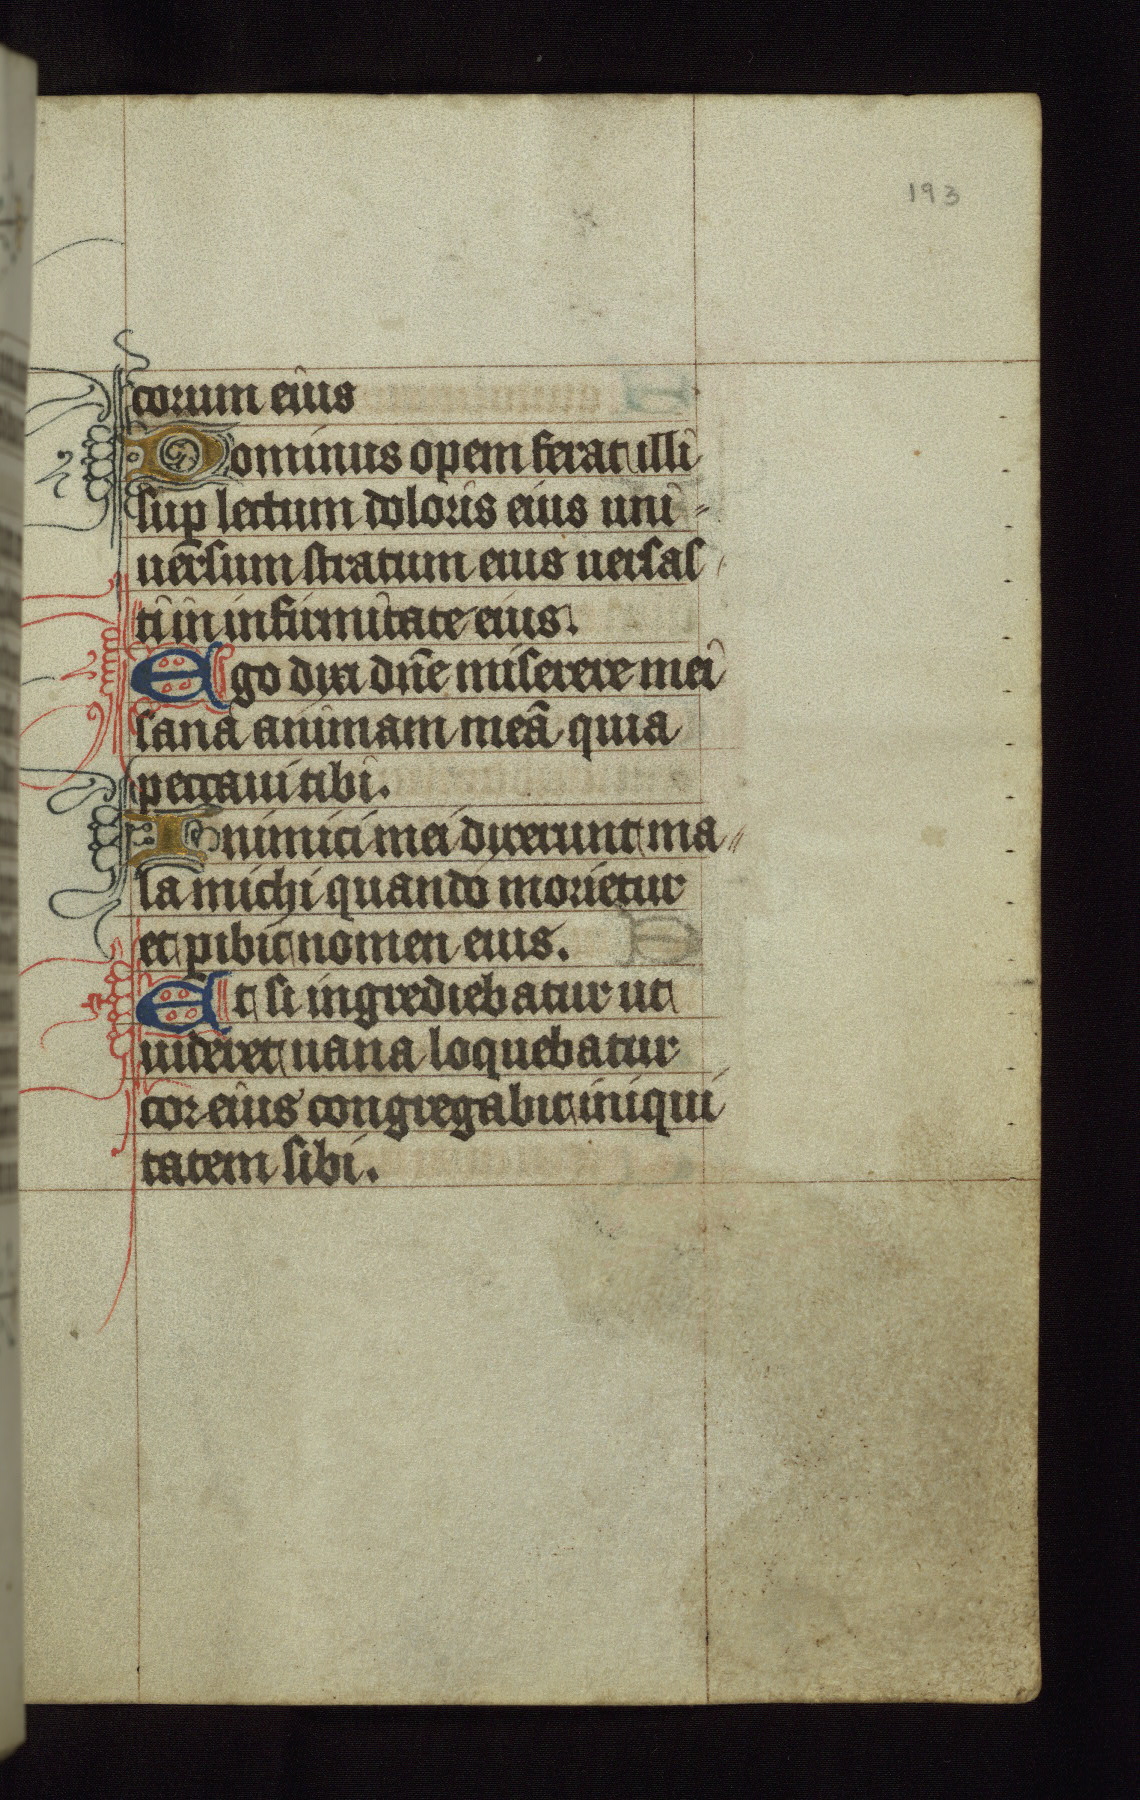 193
corum eius
Dominus opem ferat illi
sup lectum doloris eius uni-
uersum stratum eius uersas
ti in infirmitate eius.
Ego dixi dn̄e miserere mei
sana animam meā quia
peccaui tibi.
Inimici mei dixerunt ma-
la michi quando morietur
et pibit nomen eius.
Et si ingrediebatur ut
uideret uana loquebatur
cor eius congregabit iniqui
tatem sibi.